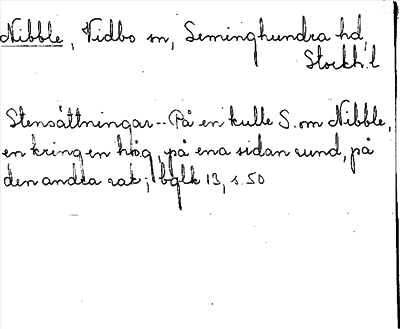 Nibble, Vidbo sn, Seminghundra hd,
Stockh. l
Stensättningar -- På en kulle S. om Nibble,
en kring en hög, på ena sidan rund, på
den andra rak; bglk 13, s. 50